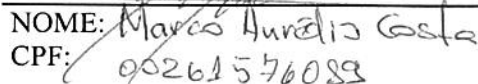 NOME: Marco Aurélio Costa
CPF: 00261576089